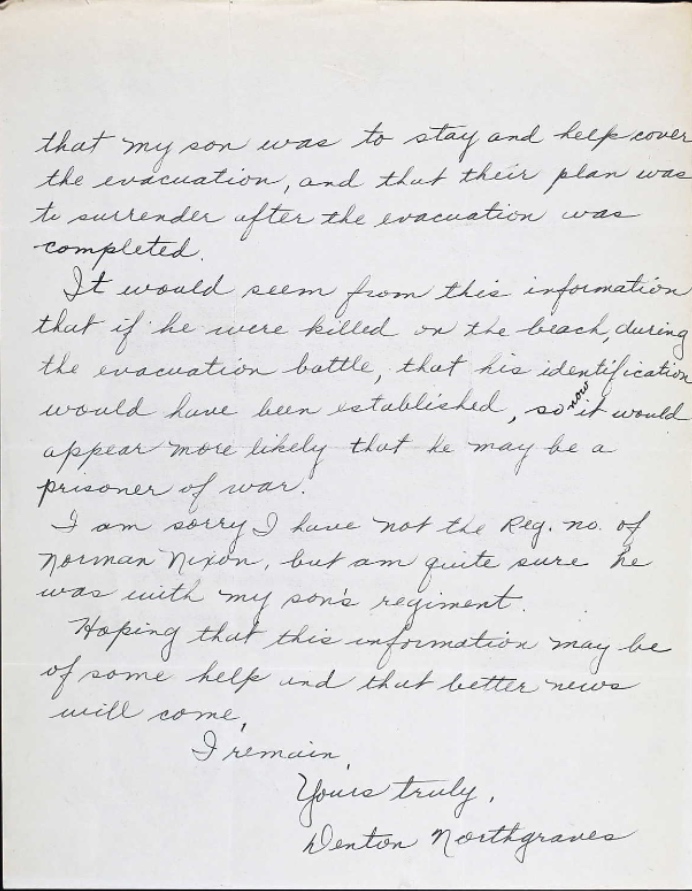 that my son was to stay and help cover
the evacuation, and that their plan was
to surrender after the evacuation was
completed.
It would seem from this information
that if he were killed on the beach, during
the evacuation battle, that his identification
would have been established, so now it would
appear more likely that he may be a
prisoner of war.
I am sorry I have not the Reg. no. of
Norman Nixon, but am quite sure he
was with my son's regiment.
Hoping that this information may be
of some help and that better news
will come,
I remain,
Yours truly,
Denton Northgraves